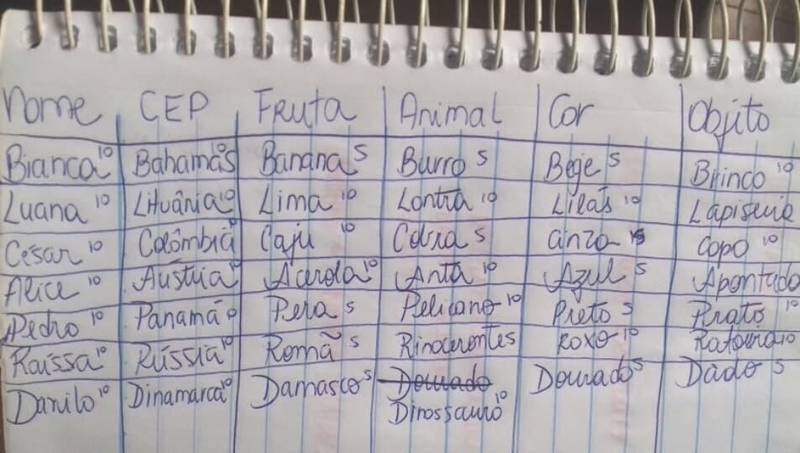 Nome CEP Fruta Animal Cor Objito
Bianca 10 Bahamas 10 Banana 5 Burro 5 Bege 5 Brinco 10
Luana 10 Lituânia 10 Lima 10 Lontra 10 Lilás 10 Lapiseira
César 10 Colômbia 10 Caju 10 Cobra 5 Cinza Copo 10
Alice 10 Áustria 10 Acerola 10 Anta 10 Azul 5 Apontado
Pedro 10 Panamá Pera 5 Pelicano 10 Preto 5 Prato 10
Raissa 10 Rússia 10 Romã 5 Rinocerontes Roxo 10
Danilo 10 Dinamarca 10 Damasco 5 Dourado Dourado 5 Dado 5
Dinossauro 10